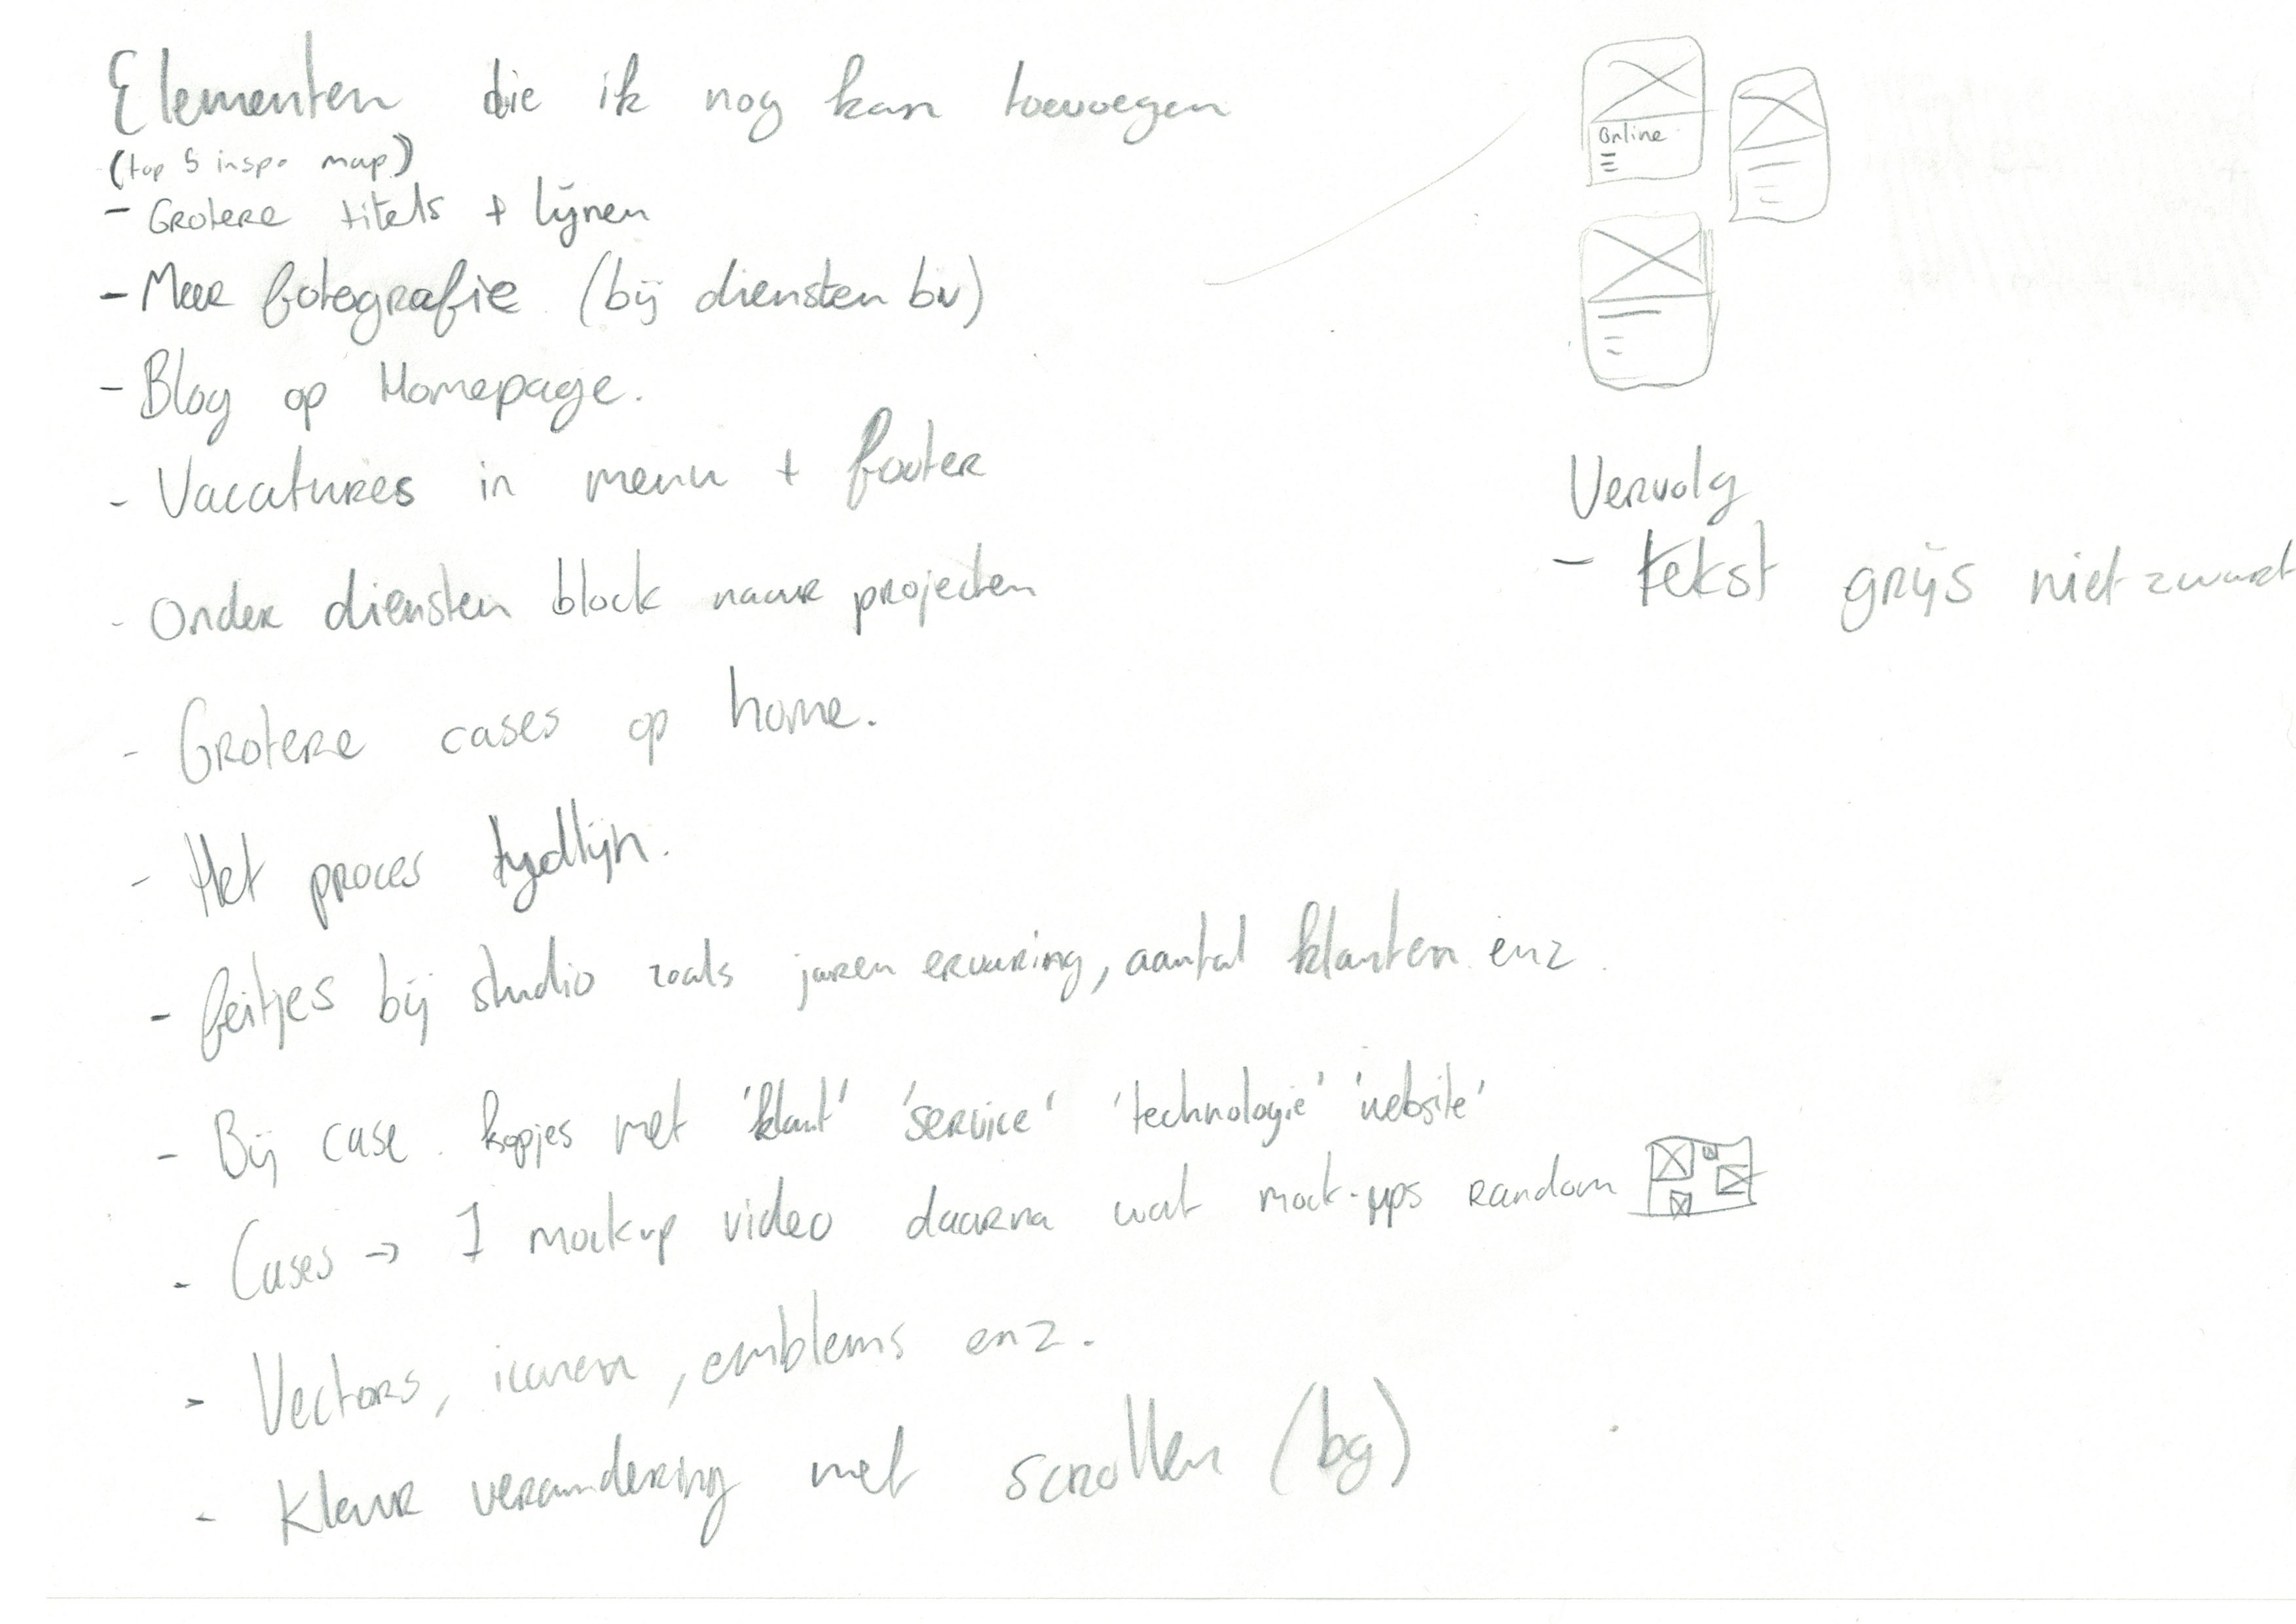 Elementen die ik nog kan toevoegen
(top 5 inspo map)
- Grotere titels + lijnen
- Meer fotografie (bij diensten bv)
- Blog op Homepage.
- Vacatures in menu + footer
- Onder diensten block naar projecten
- Grotere cases op home.
- Het proces tijdlijn.
- feitjes bij studio zoals jaren ervaring, aantal klanten enz.
- Bij case. kopjes met 'klant' 'service' 'technologie' 'website'
- Cases → 1 mockup video daarna wat mock-ups random
- Vectors, iconen, emblems enz.
- Kleur verandering met scrollen (bg)
Online
Vervolg
- tekst grijs niet zwart